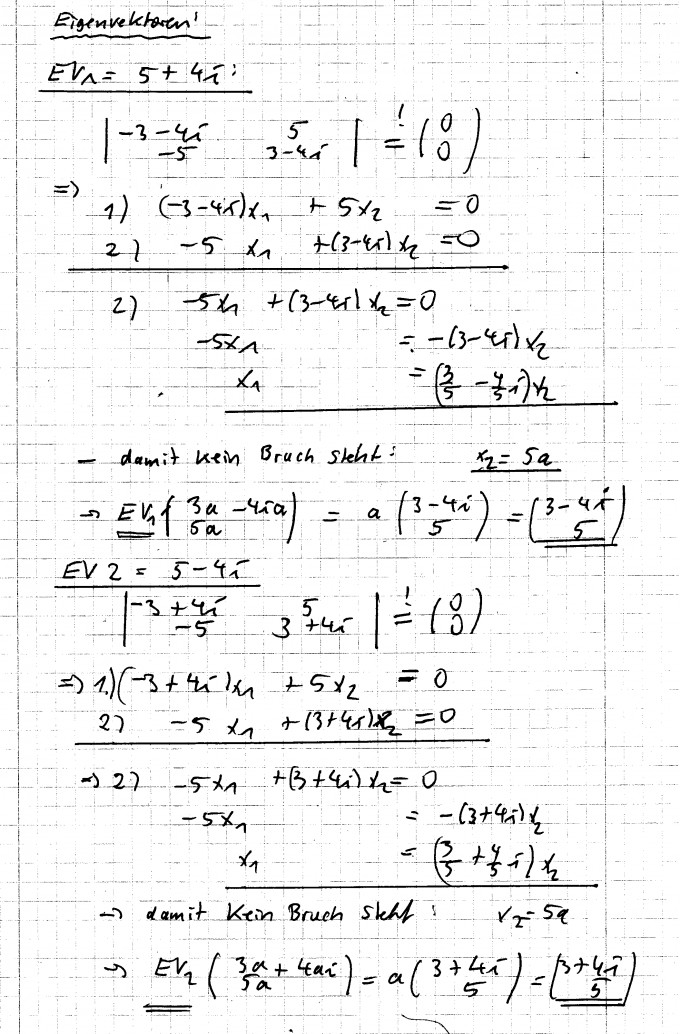 Eigenvektoren:
EV1 = 5 + 4i:
| -3 - 4i 5 | != ( 0
-5 3-4i 0 )
=>
1) (-3-4i)x1 + 5x2 = 0
2) -5 x1 +(3-4i) x2 = 0
2) -5x1 +(3-4i) x2 = 0
-5x1 = -(3-4i) x2
x1 = (3/5 - 4/5 i) x2
- damit kein Bruch steht: x2 = 5a
→ EV1 ( 3a - 4ia ) = a ( 3-4i ) = ( 3-4i )
5a 5 5
EV 2 = 5-4i
| -3 + 4i 5 | != ( 0
-5 3 +4i 0 )
=> 1.) (-3 + 4i) x1 + 5x2 = 0
2) -5 x1 +(3+4i) x2 = 0
→ 2) -5x1 +(3+4i) x2 = 0
-5x1 = -(3+4i) x2
x1 = (3/5 + 4/5 i) x2
→ damit kein Bruch steht: x2 = 5a
→ EV2 ( 3a + 4ai ) = a ( 3+4i ) = ( 3+4i )
5a 5 5